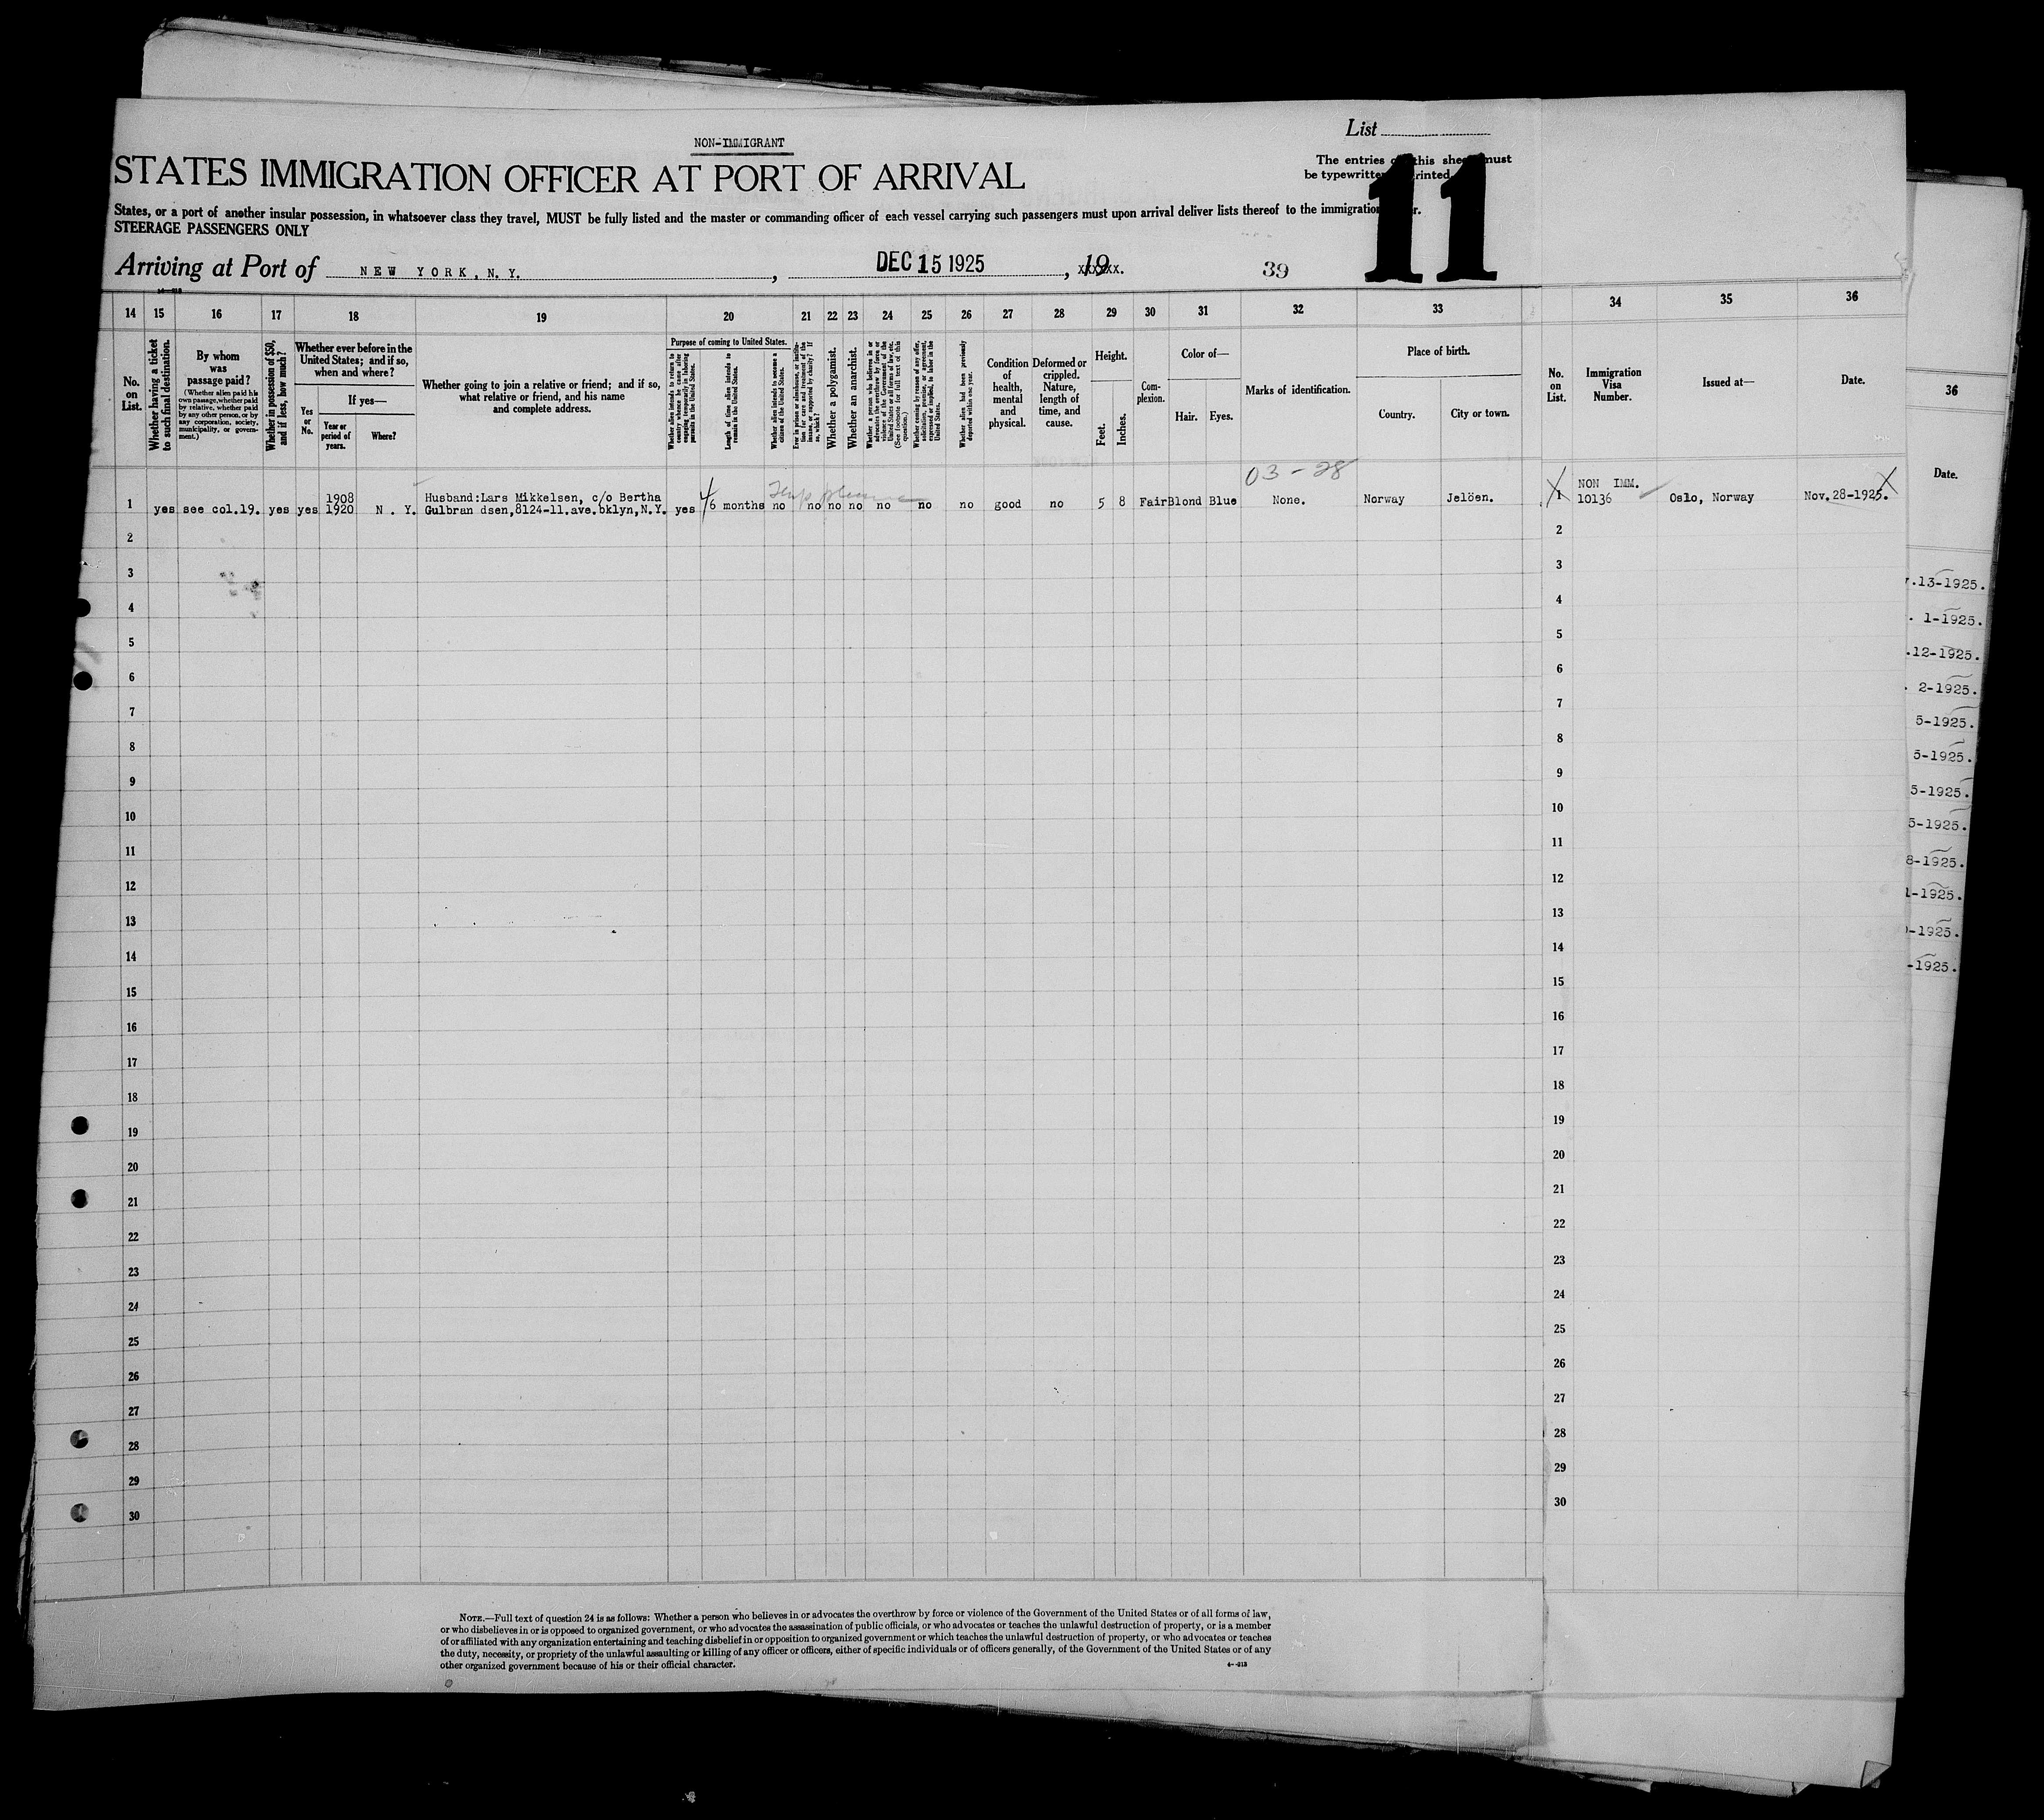 NON-IMMIGRANT
List
STATES IMMIGRATION OFFICER AT PORT OF ARRIVAL
The entries this must
be typewritte rinted.
11
States, or a port of another insular possession, in whatsoever class they travel, MUST be fully listed and the master or commanding officer of each vessel carrying such passengers must upon arrival deliver lists thereof to the immigration r.
STEERAGE PASSENGERS ONLY
Arriving at Port of NEW YORK, N.Y. , DEC 15 1925 , 19xxxxx.
39
14 15 16 17 18 19 20 21 22 23 24 25 26 27 28 29 30 31 32 33 34 35 36
No. on List.
Whether having a ticket to such final destination.
By whom was passage paid?
(Whether alien paid his own passage, whether paid by relative, whether paid by any other person, or by any corporation, society, municipality, or government.)
Whether in possession of $50, and if less, how much?
Whether ever before in the United States; and if so, when and where?
Yes or No.
If yes—
Year or period of years.
Where?
Whether going to join a relative or friend; and if so, what relative or friend, and his name and complete address.
Purpose of coming to United States.
Whether alien intends to return to country whence he came after engaging temporarily in laboring pursuits in the United States.
Length of time alien intends to remain in the United States.
Whether alien intends to become a citizen of the United States.
Ever in prison or almshouse, or institution for care and treatment of the insane, or supported by charity? If so, which?
Whether a polygamist.
Whether an anarchist.
Whether a person who believes in or advocates the overthrow by force or violence of the Government of the United States or all forms of law, etc. (See footnote for full text of this question.)
Whether coming by reason of any offer, solicitation, promise, or agreement, expressed or implied, to labor in the United States.
Whether alien had been previously deported within one year.
Condition of health, mental and physical.
Deformed or crippled. Nature, length of time, and cause.
Height.
Feet.
Inches.
Complexion.
Color of—
Hair.
Eyes.
Marks of identification.
Place of birth.
Country.
City or town.
No. on List.
Immigration Visa Number.
Issued at—
Date.
36
Date.
03-28
1 yes see col.19. yes yes 1908 1920 N. Y. Husband:Lars Mikkelsen, c/o Bertha
Gulbran dsen,8124-11.ave.bklyn,N.Y. yes 6 months no no no no no no no good no 5 8 Fair Blond Blue None. Norway Jelöen. 1 NON IMM. 10136 Oslo, Norway Nov.28-1925.
2 2
3 3 .13-1925.
4 4 . 1-1925.
5 5 .12-1925.
6 6 . 2-1925.
7 7 5-1925.
8 8 5-1925.
9 9 5-1925.
10 10 5-1925.
11 11 8-1925.
12 12 1-1925.
13 13 -1925.
14 14 -1925.
15 15
16 16
17 17
18 18
19 19
20 20
21 21
22 22
23 23
24 24
25 25
26 26
27 27
28 28
29 29
30 30
NOTE.—Full text of question 24 is as follows: Whether a person who believes in or advocates the overthrow by force or violence of the Government of the United States or of all forms of law,
or who disbelieves in or is opposed to organized government, or who advocates the assassination of public officials, or who advocates or teaches the unlawful destruction of property, or is a member
of or affiliated with any organization entertaining and teaching disbelief in or opposition to organized government or which teaches the unlawful destruction of property, or who advocates or teaches
the duty, necessity, or propriety of the unlawful assaulting or killing of any officer or officers, either of specific individuals or of officers generally, of the Government of the United States or of any
other organized government because of his or their official character.